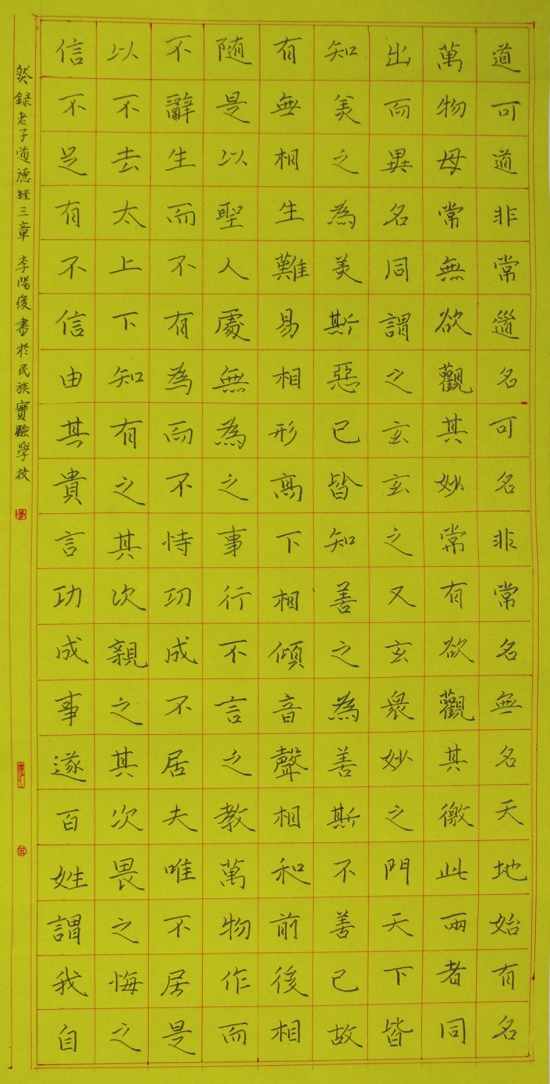 道可道非常道名可名非常名無名天地始有名
萬物母常無欲觀其妙常有欲觀其徼此兩者同
出而異名同謂之玄玄之又玄衆妙之門天下皆
知美之為美斯惡已皆知善之為善斯不善已故
有無相生難易相形高下相傾音聲相和前後相
隨是以聖人處無為之事行不言之教萬物作而
不辭生而不有為而不恃功成不居夫唯不居是
以不去太上下知有之其次親之其次畏之悔之
信不足有不信由其貴言功成事遂百姓謂我自
然錄老子道德經三章 李陽俊書於民族實驗學校